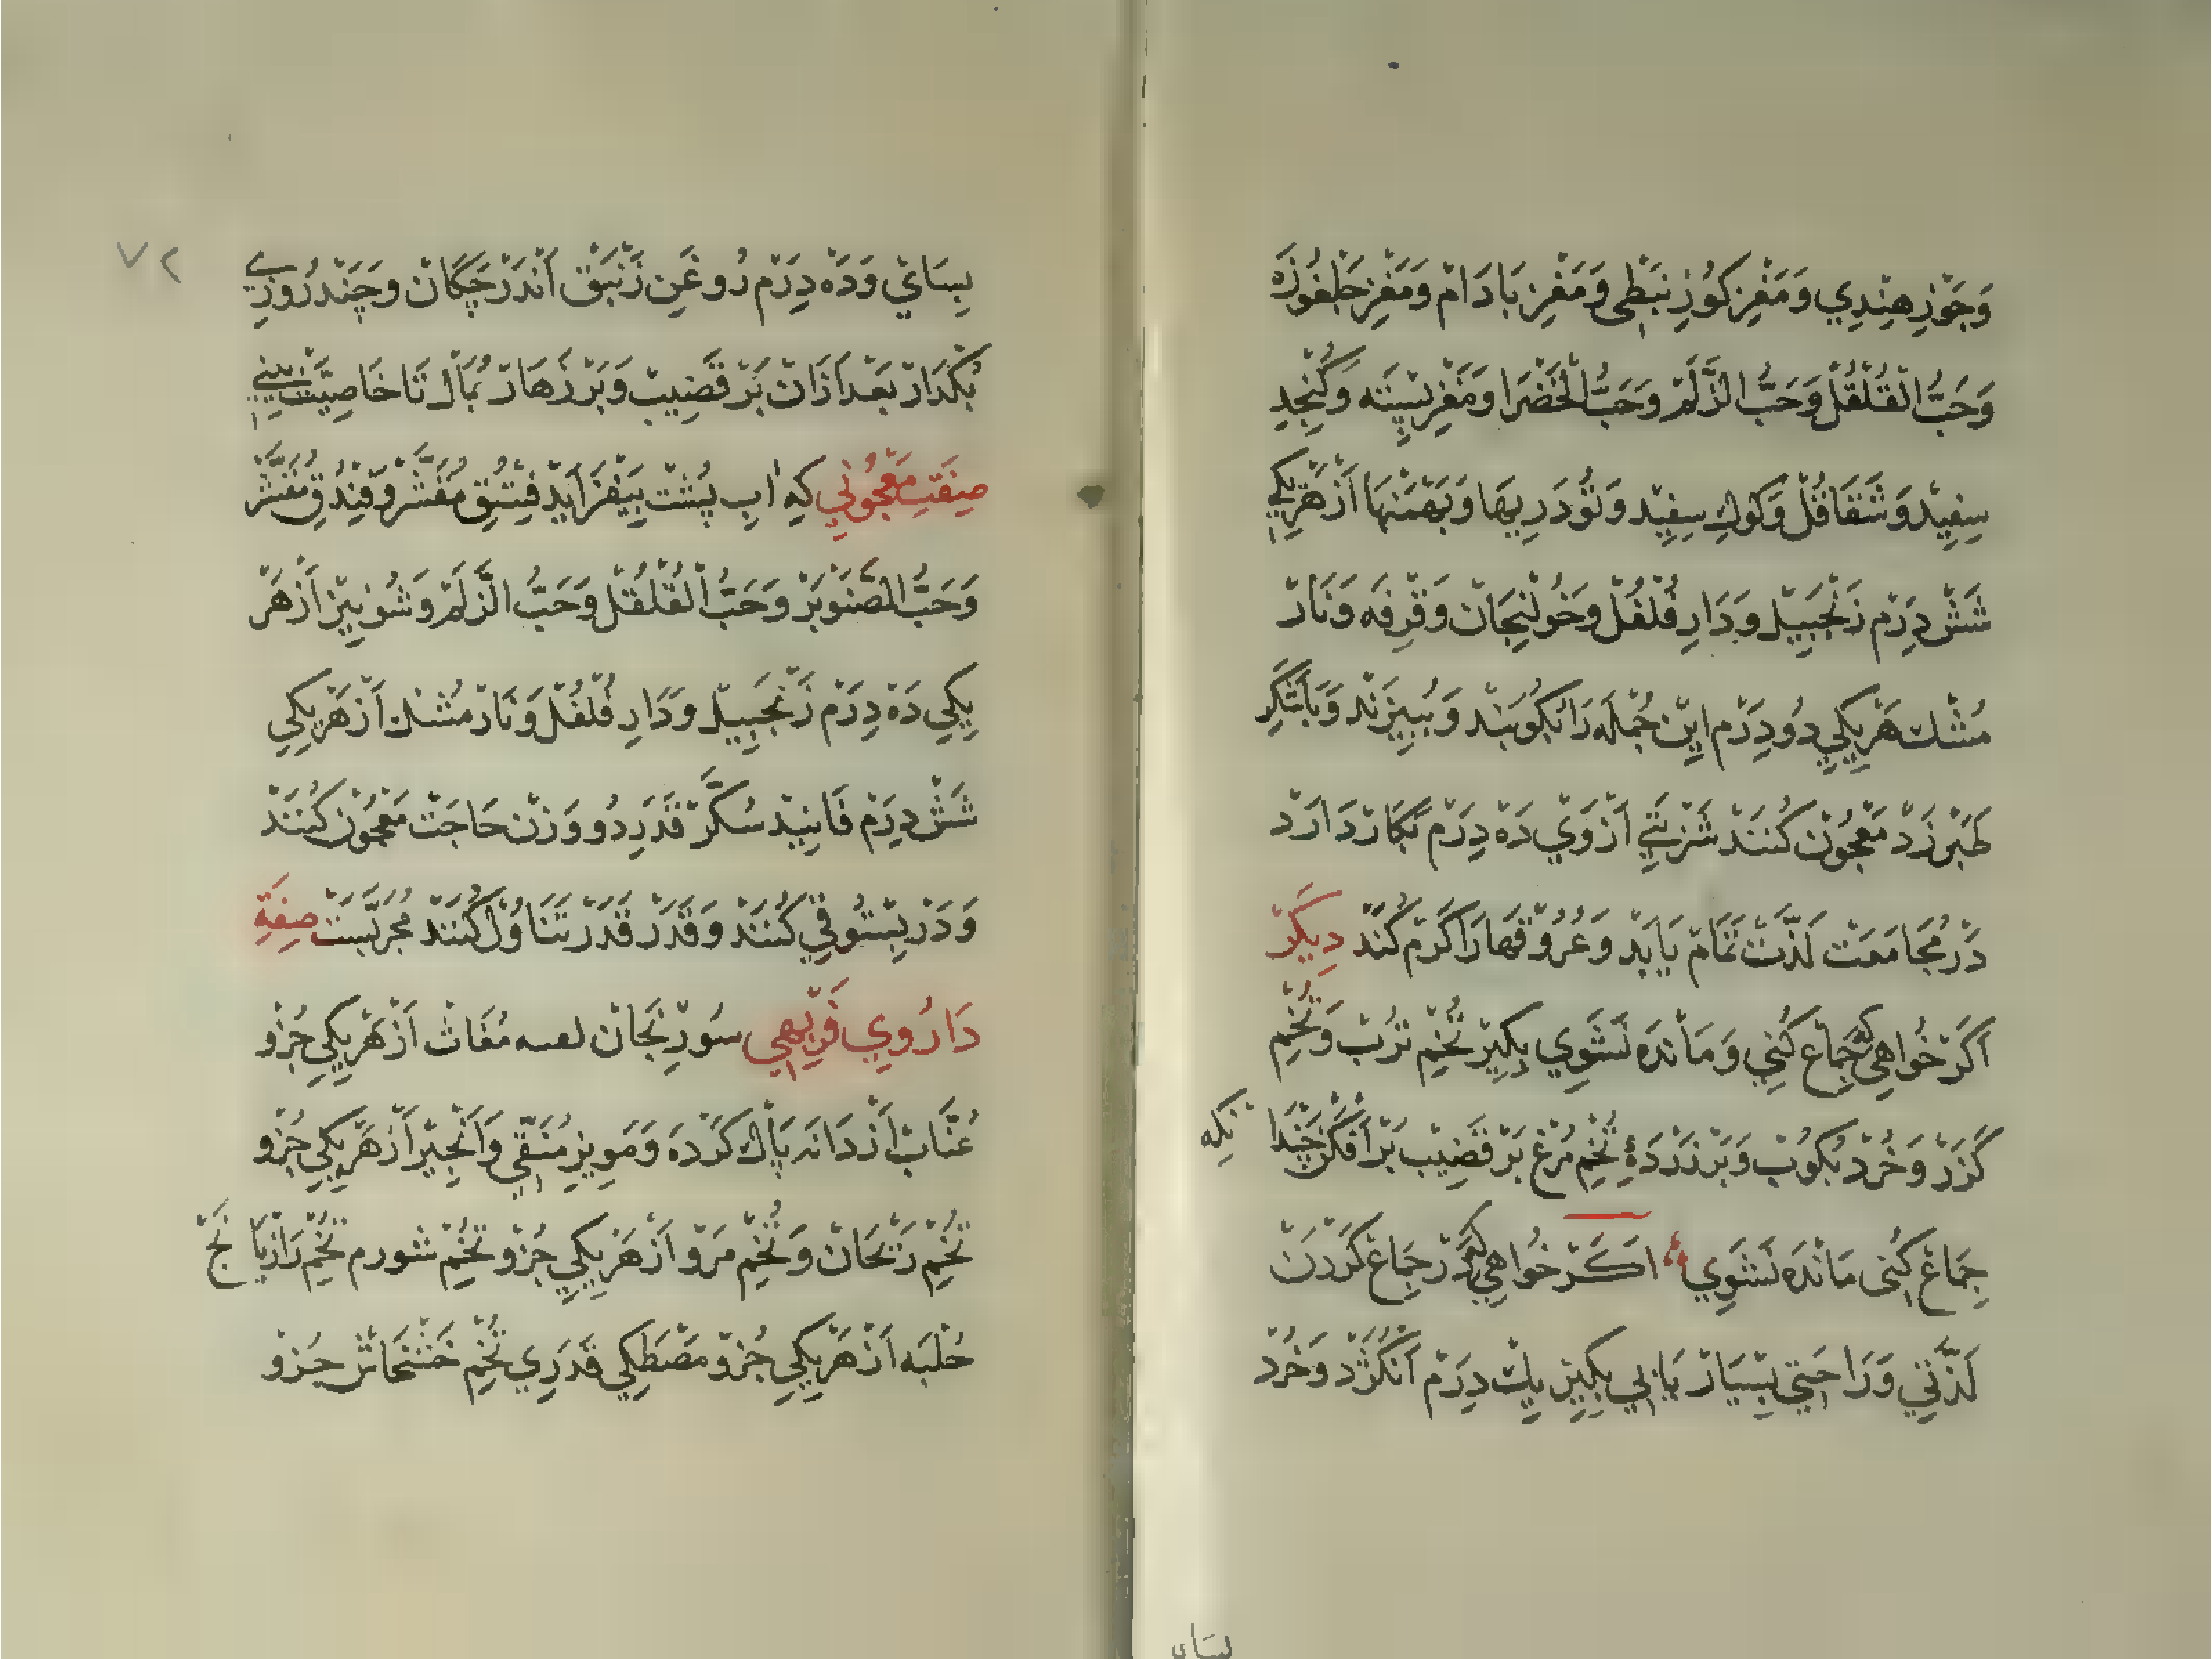 وَجَوْزِ هِنْدِي وَمَغْزِ كَوْزِ نَبَطِی وَمَغْزِ بَادَامْ وَمَغْزِ جَلْغُوزَه
وَحَبُّ الْقُلْقُلْ وَحَبُّ الزَّلَمْ وَحَبُّ الْخَضْرَا وَمَغْزِ پِسْتَه وَكُنْجِدِ
سِفِيْد وَشَقَاقُلْ وَكَوكِ سِفِيْد وَتُودَرِيهَا وَبَهْمَنْهَا اَزْ هَرْيِكِي
شَشْ دِرَمْ زَنْجَبِيْل وَدَارِ فُلْفُلْ وَخُولِنْجَانْ وَقِرْفَه وَنَارْ
مُشْك هَرْيِكِي دُو دِرَمْ ايِنْ جُمْلَه رَا بُكُوبَنْد وَبِبِيزَنْد وَبَاشَكَرِ
طَبَرْزَدْ مَعْجُونْ كُنَنْد شَرْبَتِي اَزْ وَيْ دَهْ دِرَمْ بَكَارْ دَارَدْ
دَرْ مُجَامَعَتْ لَذَّتْ تَمَامْ يَابَدْ وَعُرُوقْهَا رَا گَرْم كُنَدْ دِيكَرْ
اَكَرْ خُواهِي كِه جِمَاعْ كُنِي وَمَانْدَه نَشَوِي بِكِيرْ تُخْمِ تُرُبْ وَتُخْمِ
گَزَرْ وَخُرْد بُكُوبْ وَبَرْ زَرْدَهٔ تُخْمِ مُرْغ بَرْ قَضِيْب بَرْ اَفْكَنْ چَنْدَا نْكِه
جِمَاعْ كُنِی مَانْدَه نَشَوِي اَكَرْ خُواهِي كِه دَرْ جِمَاعْ كَرْدَنْ
لَذَّتِي وَرَاحَتِي بِسْيَارْ يَابِي بِكِيرْ يِك دِرَمْ اَنْگُژَدْ وَخُرْد
بِسَايْ
٧٢
بِسَايْ وَدَهْ دِرَمْ رُوغَنِ زَنْبَقْ اَنْدَرْ چَكَانْ وَچَنْد رُوزِي
بُكْذَارْ بَعْد اَزَانْ بَرْ قَضِيبْ وَبَرْ زَهَارْ بُمَالْ تَا خَاصِيَّتْ بِيْنِي
صِفَتِ مَعْجُونِي كِه اٰبِ پُشْت بِيَفْزَايَدْ فِسْتُقِ مُقَشَّرْ وَفِنْدُقِ مُقَشَّرْ
وَحَبُّ الصَّنَوْبَرْ وَحَبُّ الْقُلْقُلْ وَحَبُّ الزَّلَمْ وَشُونِيْز اَزْ هَرْ
يِكِي دَهْ دِرَمْ زَنْجَبِيْل وَدَارِ فُلْفُلْ وَنَارْ مُشْك اَزْ هَرْيِكِي
شَشْ دِرَمْ فَانِيْد سُكَّرْ قَدَرِ دُو وَزْنْ حَاجَتْ مَعْجُونْ كُنَنْد
وَدَرْ بِسْتُوقِي كُنَنْد وَقَدَرْ قَدَرْ تَنَاوُلْ كُنَنْد مُجَرَّبَسْت صِفَةِ
دَارُويِ فَرْبِهِي سُورِنْجَانْ لعبه مُغَاثْ اَزْ هَرْيِكِي جُزْو
عُنَّابْ اَزْ دَانَه پَاكْ كَرْدَه وَمَوِيزِ مُنَقّٰى وَاَنْجِيْر اَزْ هَرْيِكِي جُزْو
تُخْمِ رَيْحَانْ وَتُخْمِ مَرْو اَزْ هَرْيِكِي جُزْو تُخْمِ شورم تُخْمِ رَازْيَا نَجْ
حُلْبَه اَزْ هَرْيِكِي جُزْو مَصْطَكِي قَدَرِي تُخْمِ خَشْخَاشْ جُزْو